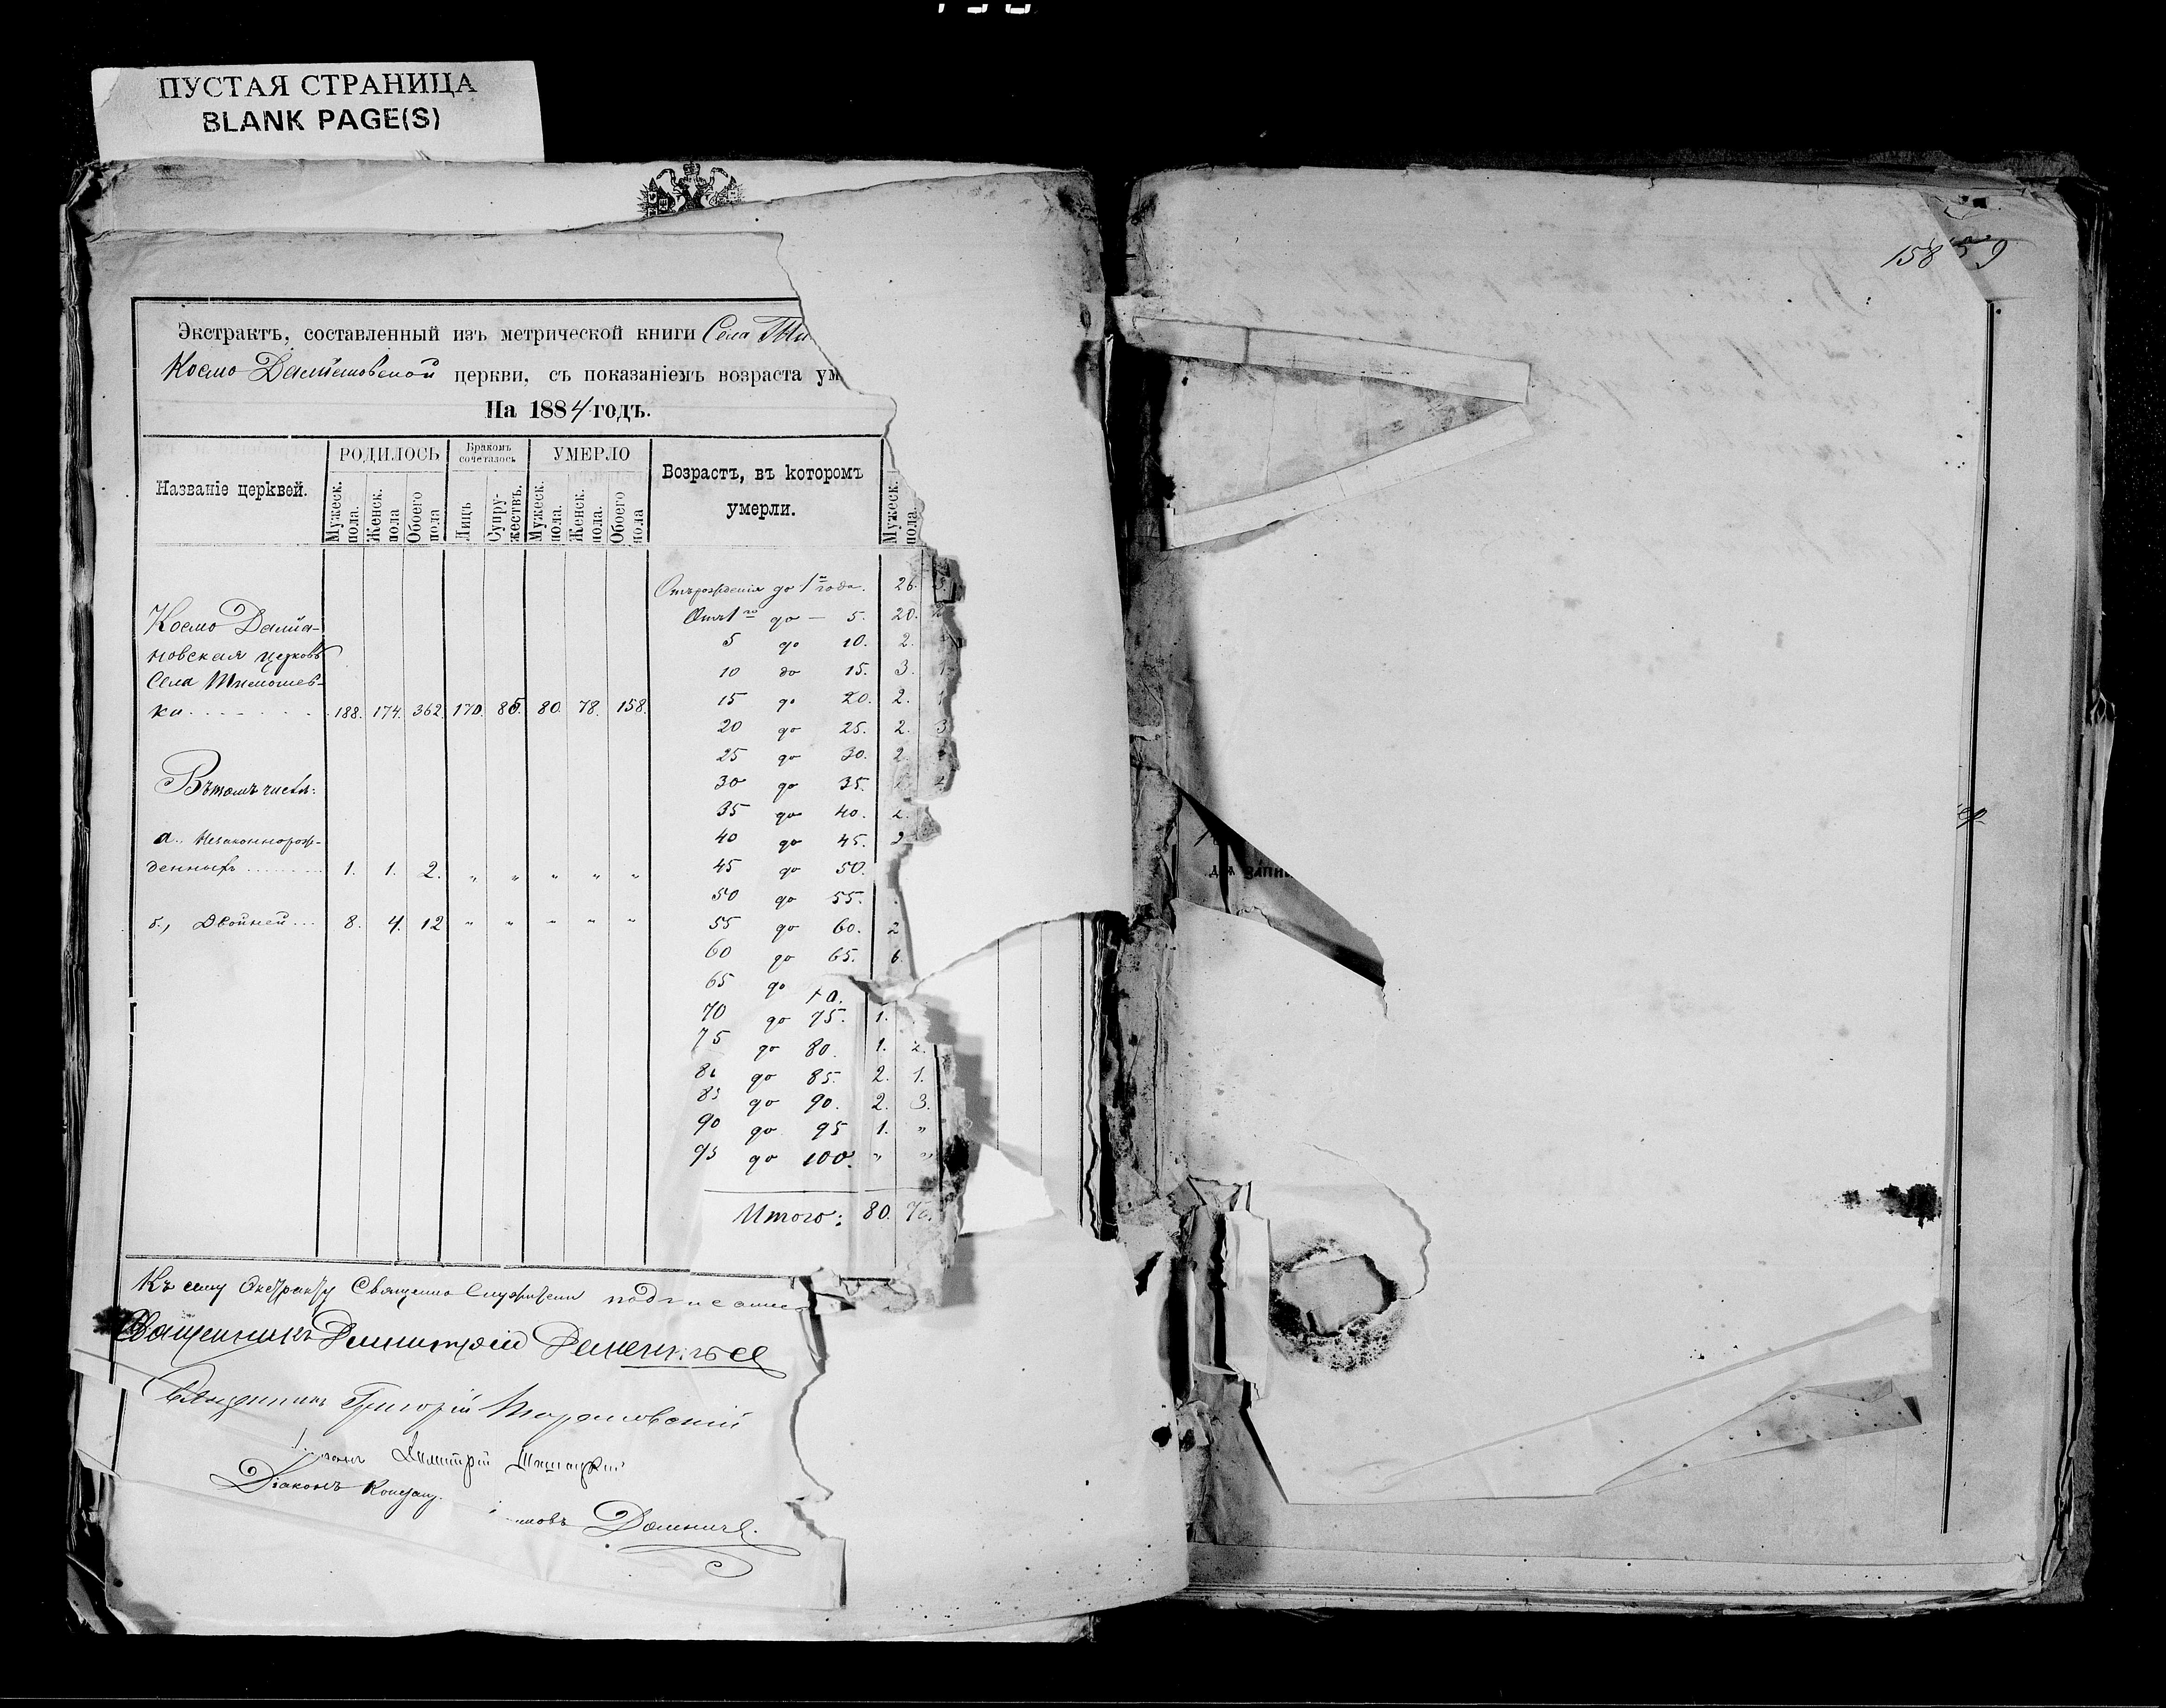 ПУСТАЯ СТРАНИЦА
BLANK PAGE(S)
Экстрактъ, составленный изъ метрической книги Села Ти
Космо Даміановской церкви, съ показаніемъ возраста ум
На 1884 годъ.
Названіе церквей. РОДИЛОСЬ Бракомъ сочеталось УМЕРЛО Возрастъ, въ котором умерли.
Мужеск. пола. Женск. пола Обоего пола Лицъ Супружествъ. Мужеск. пола. Женск. пола. Обоего пола Мужеск. пола.
Отъ рожденія до 1го года. 26.
Космо Даміа- Отъ 1го до — 5. 20.
новская церковь 5 до 10. 2.
Села Тимошев- 10 до 15. 3. 1.
ки 188. 174. 362 170. 85. 80. 78. 158. 15 до 20. 2. 1
20 до 25. 2. 3
25 до 30. 2.
Въ томъ числѣ: 30 до 35.
35 до 40. 2.
а. Незаконнорож- 40 до 45. 2
денныхъ 1. 1. 2. „ „ „ „ „ 45 до 50.
50 до 55.
б., Двойней 8. 4. 12 „ „ „ „ „ 55 до 60. 2
60 до 65. 6.
65 до 70.
70 до 75. 1.
75 до 80. 1. 2.
80 до 85. 2. 1.
85 до 90. 2. 3.
90 до 95 1. „
95 до 100. „ „
Итого: 80. 78.
Къ сему Экстракту Священно Служители подписались
Священникъ Димитрій
Священникъ Григорій
Димитрій
Діаконъ
15859
ДЛЯ ЗАПИ